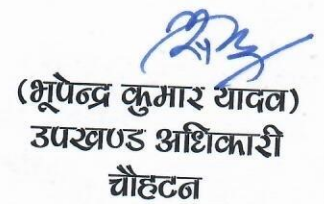 (भूपेन्द्र कुमार यादव)
उपखण्ड अधिकारी
चौहटन